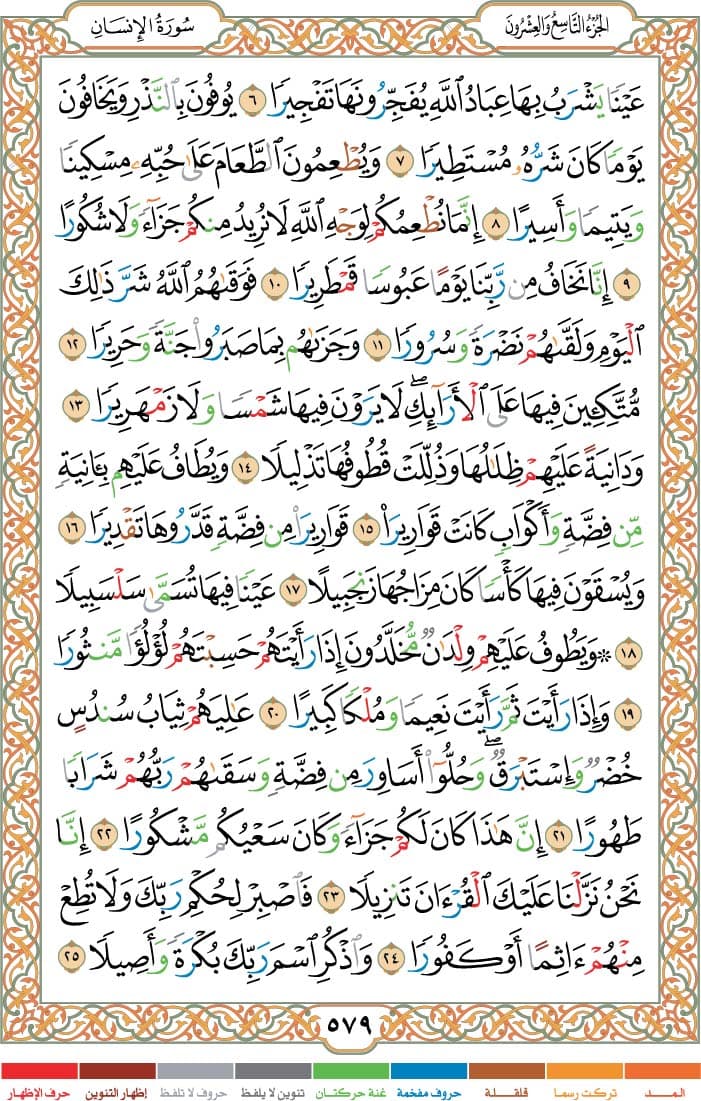 الجُزْءُ التَّاسِعُ وَالعِشْرُونَ
سُورَةُ الإِنسَان
عَيْنًا يَشْرَبُ بِهَا عِبَادُ ٱللَّهِ يُفَجِّرُونَهَا تَفْجِيرًا ٦ يُوفُونَ بِٱلنَّذْرِ وَيَخَافُونَ
يَوْمًا كَانَ شَرُّهُۥ مُسْتَطِيرًا ٧ وَيُطْعِمُونَ ٱلطَّعَامَ عَلَىٰ حُبِّهِۦ مِسْكِينًا
وَيَتِيمًا وَأَسِيرًا ٨ إِنَّمَا نُطْعِمُكُمْ لِوَجْهِ ٱللَّهِ لَا نُرِيدُ مِنكُمْ جَزَآءً وَلَا شُكُورًا
٩ إِنَّا نَخَافُ مِن رَّبِّنَا يَوْمًا عَبُوسًا قَمْطَرِيرًا ١٠ فَوَقَىٰهُمُ ٱللَّهُ شَرَّ ذَٰلِكَ
ٱلْيَوْمِ وَلَقَّىٰهُمْ نَضْرَةً وَسُرُورًا ١١ وَجَزَىٰهُم بِمَا صَبَرُوا۟ جَنَّةً وَحَرِيرًا ١٢
مُّتَّكِـِٔينَ فِيهَا عَلَى ٱلْأَرَآئِكِ ۖ لَا يَرَوْنَ فِيهَا شَمْسًا وَلَا زَمْهَرِيرًا ١٣
وَدَانِيَةً عَلَيْهِمْ ظِلَٰلُهَا وَذُلِّلَتْ قُطُوفُهَا تَذْلِيلًا ١٤ وَيُطَافُ عَلَيْهِم بِـَٔانِيَةٍ
مِّن فِضَّةٍ وَأَكْوَابٍ كَانَتْ قَوَارِيرَا۠ ١٥ قَوَارِيرَا۟ مِن فِضَّةٍ قَدَّرُوهَا تَقْدِيرًا ١٦
وَيُسْقَوْنَ فِيهَا كَأْسًا كَانَ مِزَاجُهَا زَنجَبِيلًا ١٧ عَيْنًا فِيهَا تُسَمَّىٰ سَلْسَبِيلًا
١٨ ۞ وَيَطُوفُ عَلَيْهِمْ وِلْدَٰنٌ مُّخَلَّدُونَ إِذَا رَأَيْتَهُمْ حَسِبْتَهُمْ لُؤْلُؤًا مَّنثُورًا
١٩ وَإِذَا رَأَيْتَ ثَمَّ رَأَيْتَ نَعِيمًا وَمُلْكًا كَبِيرًا ٢٠ عَٰلِيَهُمْ ثِيَابُ سُندُسٍ
خُضْرٌ وَإِسْتَبْرَقٌ ۖ وَحُلُّوٓا۟ أَسَاوِرَ مِن فِضَّةٍ وَسَقَىٰهُمْ رَبُّهُمْ شَرَابًا
طَهُورًا ٢١ إِنَّ هَٰذَا كَانَ لَكُمْ جَزَآءً وَكَانَ سَعْيُكُم مَّشْكُورًا ٢٢ إِنَّا
نَحْنُ نَزَّلْنَا عَلَيْكَ ٱلْقُرْءَانَ تَنزِيلًا ٢٣ فَٱصْبِرْ لِحُكْمِ رَبِّكَ وَلَا تُطِعْ
مِنْهُمْ ءَاثِمًا أَوْ كَفُورًا ٢٤ وَٱذْكُرِ ٱسْمَ رَبِّكَ بُكْرَةً وَأَصِيلًا ٢٥
٥٧٩
المـــد تركت رسما قلقـــلة حروف مفخمة غنة حركتان تنوين لا يلفظ حروف لا تلفظ إظهار التنوين حرف الإظهار